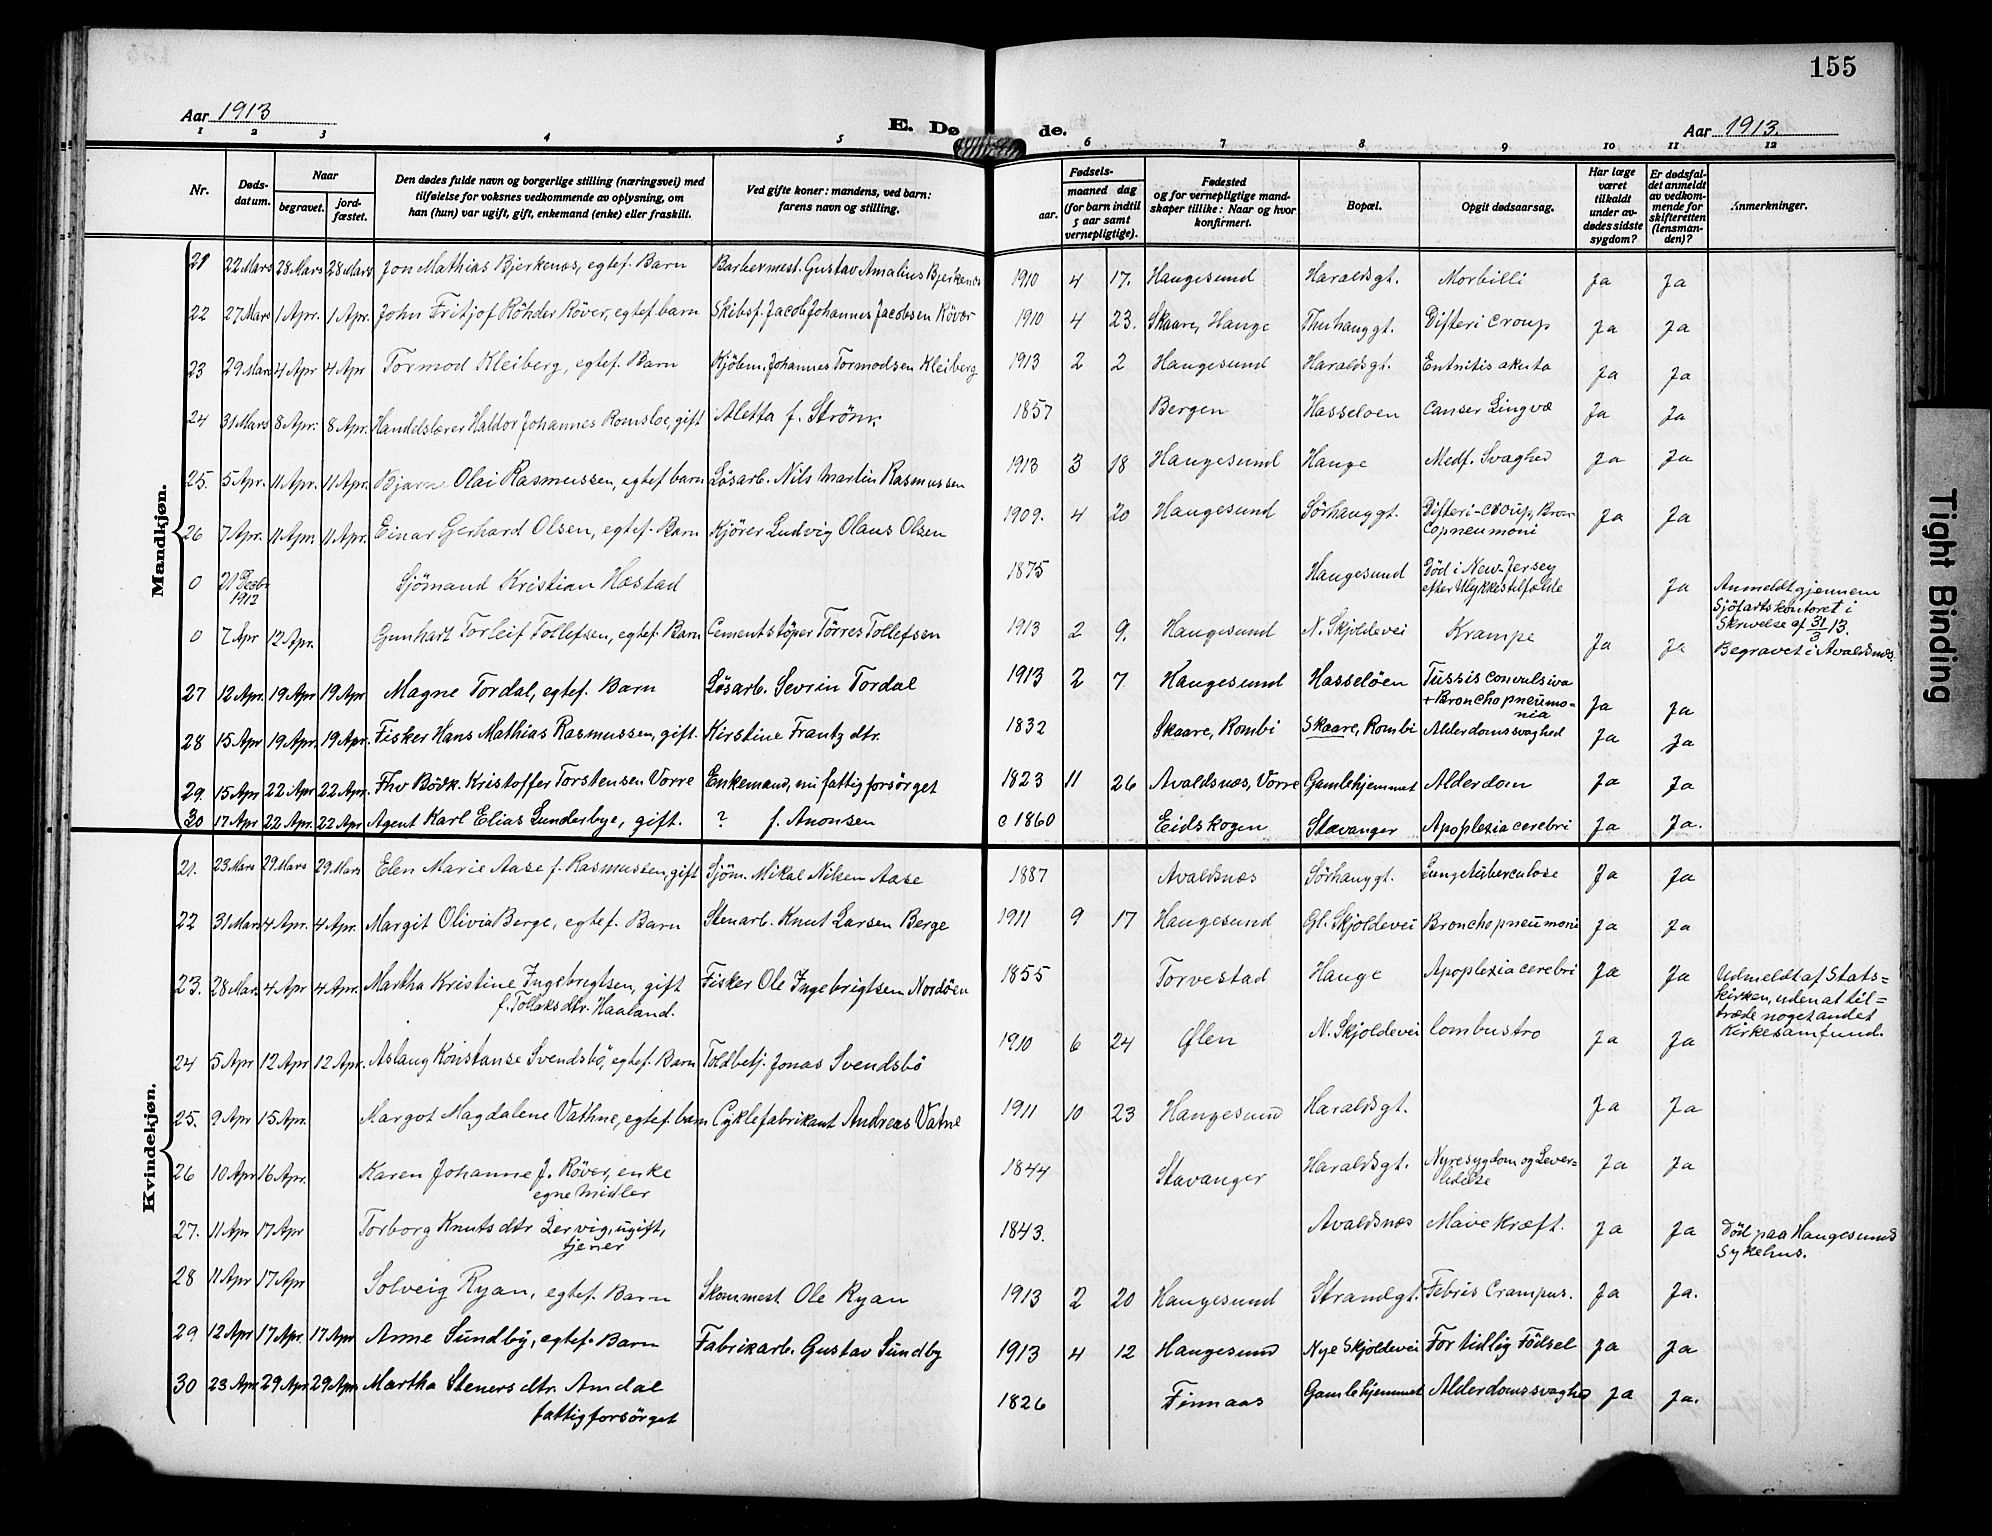 155
Aar 1913
E. Døde.
Aar 1913.
1 2 3 4 5 6 7 8 9 10 11 12
Nr.
Døds-
datum.
Naar
begravet.
jord-
fæstet.
Den dødes fulde navn og borgerlige stilling (næringsvei) med
tilføielse for voksnes vedkommende av oplysning, om
han (hun) var ugift, gift, enkemand (enke) eller fraskilt.
Ved gifte koner: mandens, ved barn:
farens navn og stilling.
Fødsels-
aar.
maaned dag
(for barn indtil
5 aar samt
vernepligtige).
Fødested
og for vernepligtige mand-
skaper tillike: Naar og hvor
konfirmert.
Bopæl.
Opgit dødsaarsag.
Har læge
været
tilkaldt
under av-
dødes sidste
sygdom?
Er dødsfal-
det anmeldt
av vedkom-
mende for
skifteretten
(lensman-
den)?
Anmerkninger.
Mandkjøn.
21 22 Mars 28 Mars 28 Mars Jon Mathias Bjerkenes, egtef. Barn Barbermest. Gustav Amalius Bjerkenes 1910 4 17. Haugesund Haraldsgt. Morbilli Ja Ja
22 27 Mars 1 Apr. 1 Apr. John Fritjof Röhder Röver, egtef barn Skibsf. Jacob Johannes Jacobsen Rövær 1910 4 23. Skaare, Hauge Thuhauggt. Difteri croup Ja Ja
23 29 Mars 4 Apr 4 Apr Tormod Kleiberg, egtef. Barn Kjöbm. Johannes Tormodsen Kleiberg 1913 2 2 Haugesund Haraldsgt. Entritis akuta Ja Ja
24 31 Mars 8 Apr. 8 Apr. Handelslærer Haldor Johannes Romsloe, gift Aletta f. Ström. 1857 Bergen Hasseloen Canser Lingvæ Ja Ja
25. 5 Apr. 11 Apr. 11 Apr. Bjarne Olai Rasmussen, egtef barn Lösarb. Nils Martin Rasmussen 1913 3 18 Haugesund Hauge Medf. Svaghed Ja Ja
26 7 Apr. 11 Apr. 11 Apr. Einar Gerhard Olsen, egtef. Barn Kjörer Ludvig Olaus Olsen 1909. 4 20 Haugesund Sörhauggt. Difteri-croup, Bron-
copneumoni Ja Ja
0 21 Decbr
1912 Sjömand Kristian Hastad 1875 Haugesund Död i New-Jersey
efter Ulykkestilfælde Ja Anmeldt gjennem
Sjöfartskontoret i
Skrivelse af 31/3 13.
0 7 Apr 12 Apr. Gunhart Torleif Tollefsen, egtef. Barn Cementstöper Törres Tollefsen 1913 2 9. Haugesund N. Skjoldevei Krampe Ja Ja Begravet i Avaldsnes
27 12 Apr. 19 Apr 19 Apr Magne Tordal, egtef. Barn Lösarb. Sevrin Tordal 1913 2 7 Haugesund Hasselöen Tussis convulsiva
+ Bronchopneumo-
nia Ja Ja
28 15 Apr 19 Apr. 19 Apr. Fisker Hans Mathias Rasmussen, gift. Kirstine Frantz dtr. 1832 Skaare, Rombi Skaare, Rombi Alderdomssvaghed Ja Ja
29. 15 Apr 22 Apr 22 Apr. Fhv Bödk. Kristoffer Torstensen Vorre Enkemand, nu fattigforsörget 1823 11 26 Avaldsnæs, Vorre Gamlehjemmet Alderdom Ja Ja
30 17 Apr 22 Apr. 22 Apr Agent Karl Elias Lunderbye, gift. ? f. Anonsen c 1860 Eidskogen Stavanger Apoplexia cerebri Ja Ja.
Kvindekjøn.
21. 23 Mars 29 Mars 29 Mars Elen Marie Aase f. Rasmussen, gift Sjöm. Mikal Nilsen Aase 1887 Avaldsnæs Sörhauggt. Lungetuberculose Ja Ja
22 31 Mars 4 Apr. 4 Apr. Margit Olivia Berge, egtef. Barn Stenarb. Knut Larsen Berge 1911 9 17 Haugesund Gl. Skjoldevei Bronchopneumoni Ja Ja
23. 28 Mars 4 Apr 4 Apr. Martha Kristine Ingebrigtsen, gift
f. Tollaksdtr. Haaland. Fisker Ole Ingebrigtsen Nordöen 1855 Torvestad Hauge Apoplexia cerebri Ja Ja Udmeldt af Stats-
kirken, uden at til-
træde noget andet
Kirkesamfund.
24 5 Apr 12 Apr 12 Apr. Aslaug Konstanse Svendsbö, egtef. Barn Toldbetj. Jonas Svendsbö 1910 6 24 Ølen N. Skjoldevei Combustro Ja Ja
25. 9 Apr 15 Apr. Margot Magdalene Vathne, egtef. barn Cyklefabrikant Andreas Vatne 1911 10 23 Haugesund Haraldsgt. Ja Ja
26 10 Apr 16 Apr. Karen Johanne J. Röver, enke
egne Midler 1844 Stavanger Haraldsgt. Nyresygdom og Lever-
lidelse Ja Ja
27. 11 Apr 17 Apr Torborg Knutsdtr Lervig, ugift,
tjener 1843. Avaldsnæs Mave Kræft. Ja Ja Död paa Haugesund
Sykehus.
28 11 Apr 17 Apr Solveig Ryan, egtef. Barn Skommest Ole Ryan 1913 2 20 Haugesund Strandgt. Febris Crampus. Ja Ja.
29 12 Apr 17 Apr. 17 Apr Anne Sundby, egtef. Barn Fabrikarb. Gustav Sundby 1913 4 12 Haugesund Nye Skjoldevei For tidlig Födsel Ja Ja
30 23 Apr 29 Apr 29 Apr Martha Stenersdtr. Amdal
fattigforsörget 1826 Finnaas Gamlehjemmet Alderdomssvaghed Ja Ja.
Tight Binding